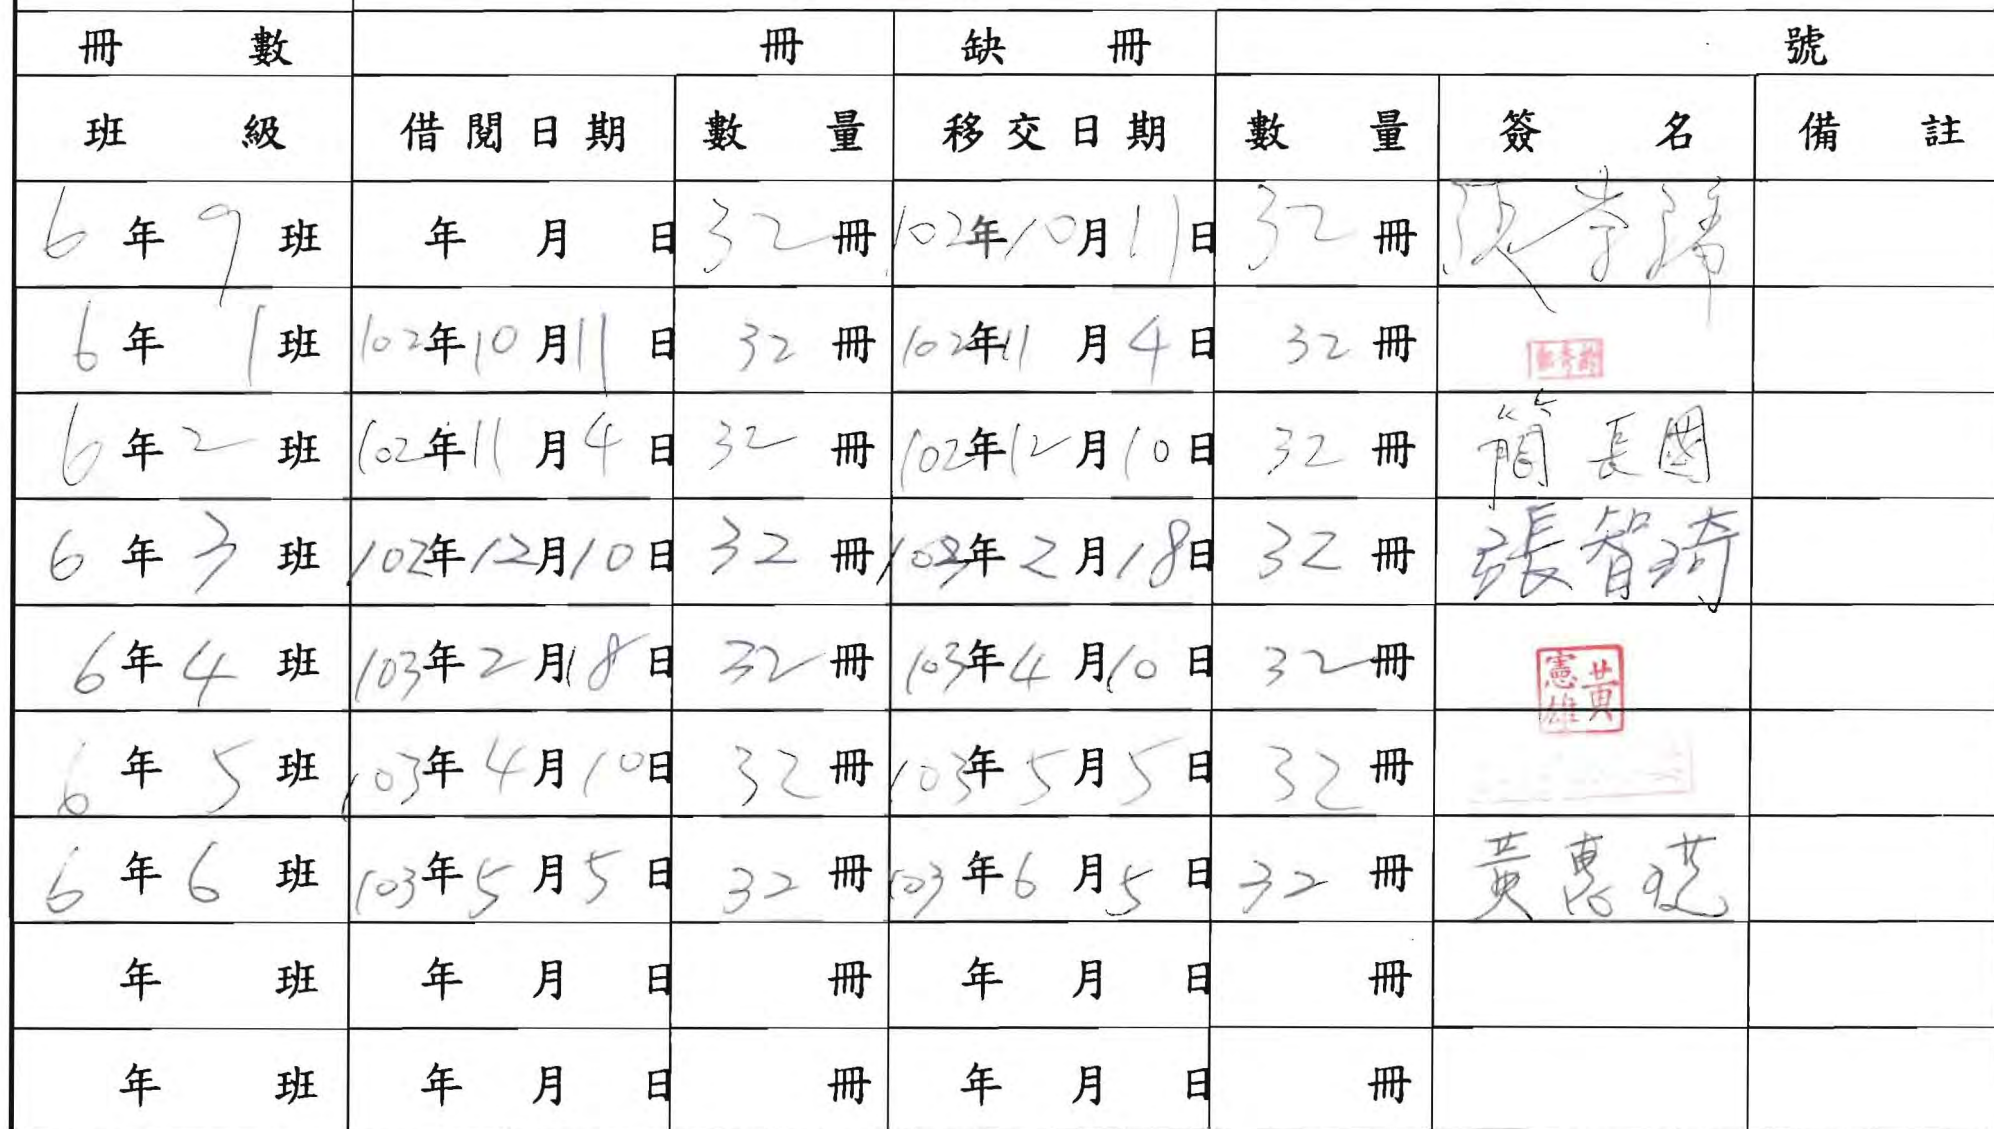 冊數 冊 缺冊 號
班級 借閱日期 數量 移交日期 數量 簽名 備註
6年9班 年 月 日 32冊 102年10月11日 32冊 張
6年1班 102年10月11日 32冊 102年11月4日 32冊
6年2班 102年11月4日 32冊 102年12月10日 32冊 簡長國
6年3班 102年12月10日 32冊 103年2月18日 32冊 張智琦
6年4班 103年2月18日 32冊 103年4月10日 32冊 黃憲雄
6年5班 103年4月10日 32冊 103年5月5日 32冊
6年6班 103年5月5日 32冊 103年6月5日 32冊 黃惠
年 班 年 月 日 冊 年 月 日 冊
年 班 年 月 日 冊 年 月 日 冊